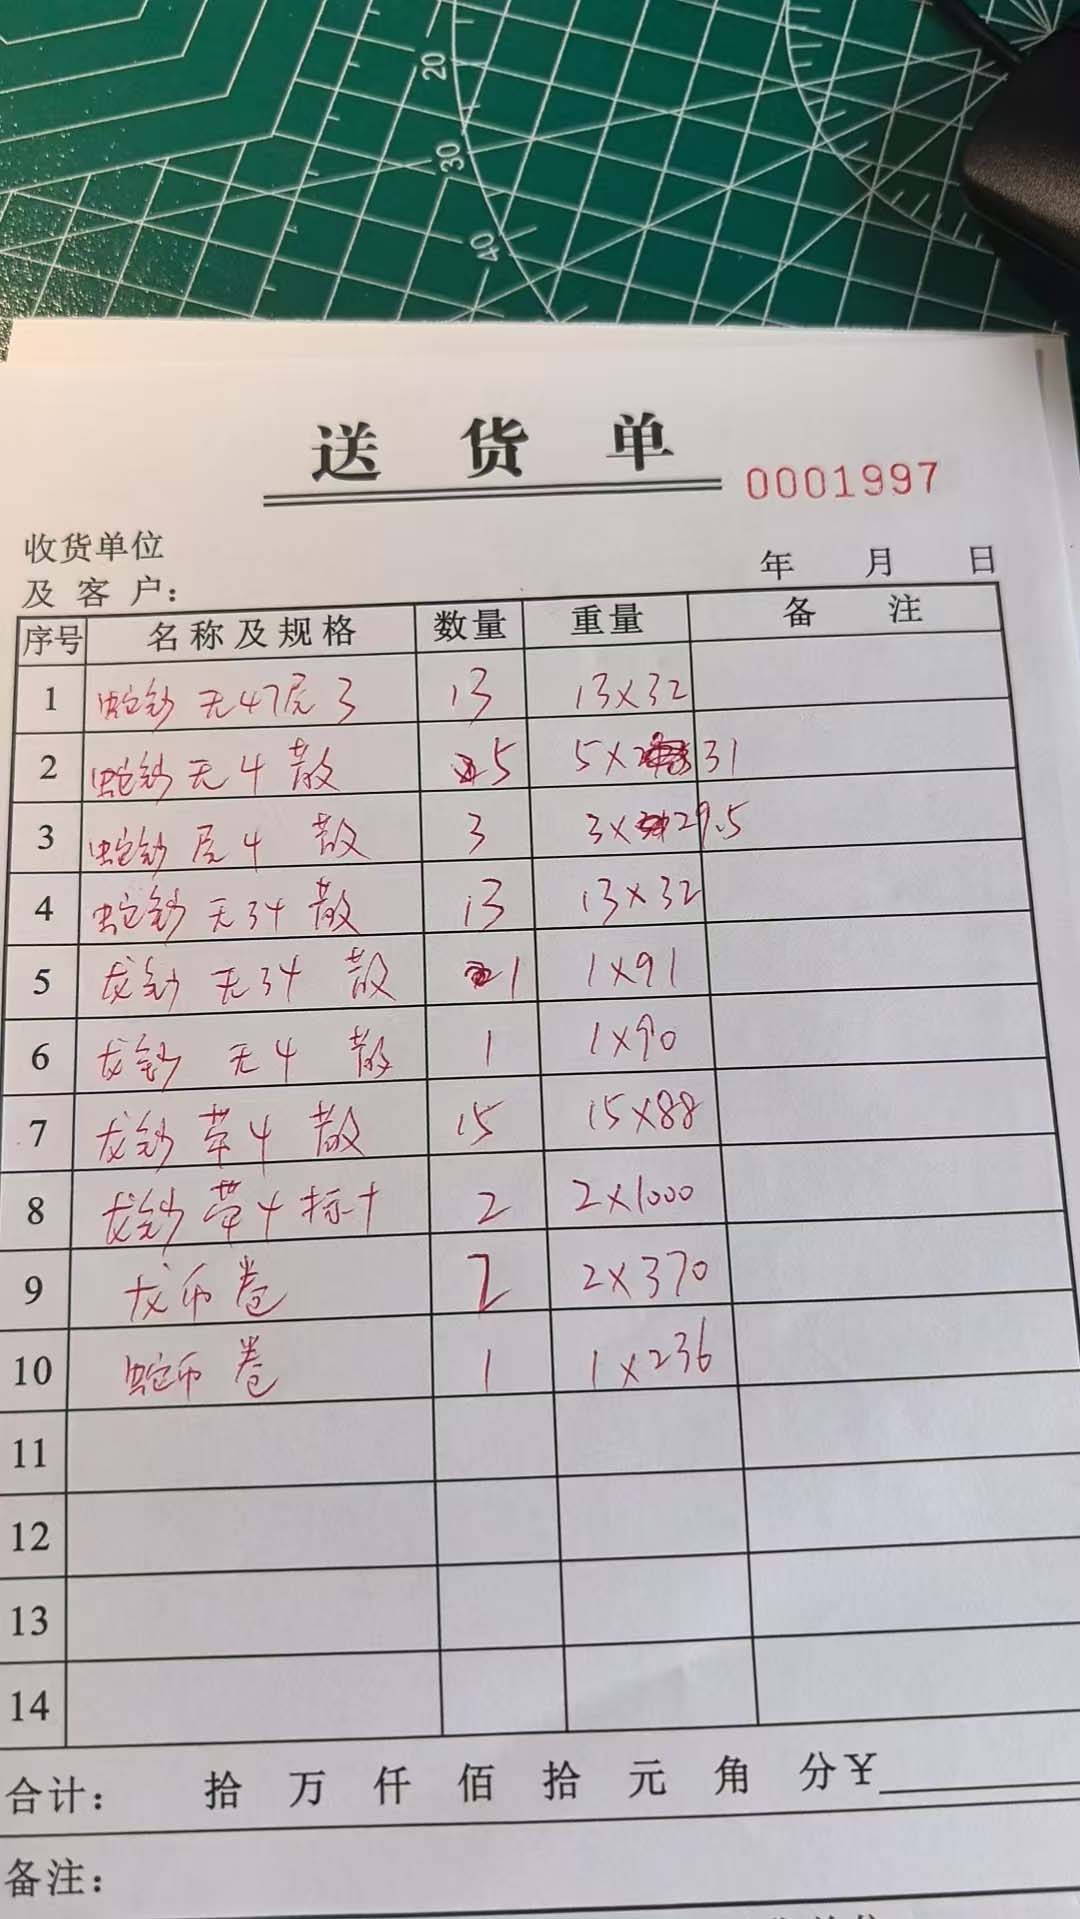 20
30
40
送货单
0001997
收货单位
及客户：
年 月 日
序号 名称及规格 数量 重量 备注
1 蛇钞 无47尾3 13 13×32
2 蛇钞 无4 散 5 5×31
3 蛇钞 尾4 散 3 3×29.5
4 蛇钞 无34 散 13 13×32
5 龙钞 无34 散 1 1×91
6 龙钞 无4 散 1 1×90
7 龙钞 带4 散 15 15×88
8 龙钞 带4 标十 2 2×1000
9 龙币 卷 2 2×370
10 蛇币 卷 1 1×236
11
12
13
14
合计： 拾 万 仟 佰 拾 元 角 分￥
备注：